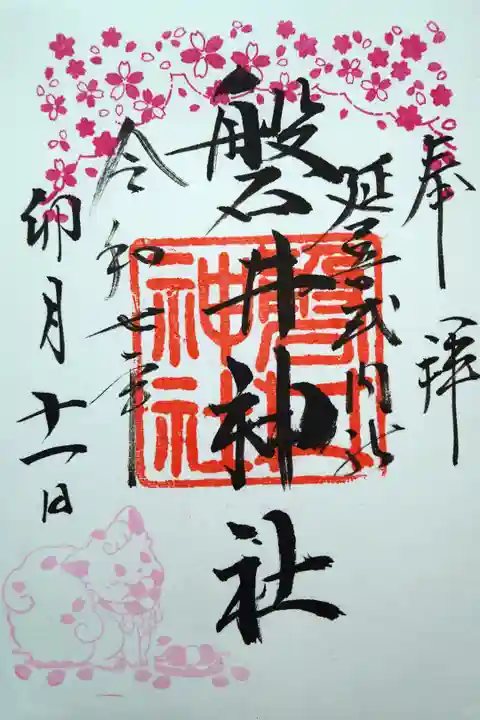 奉拝
延喜式内社
磐井神社
令和七年
卯月十一日